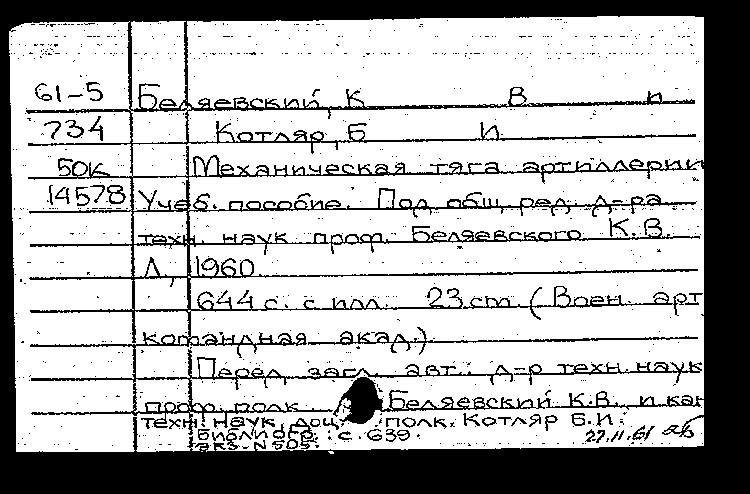 61-5 Беляевский, К В и
734 Котляр, Б И.
50к Механическая тяга артиллерии
14578 Учеб. пособие. Под общ. ред. д-ра
техн. наук проф. Беляевского К.В.
Л., 1960
644 с. с илл. 23 cm. (Воен. арт
командная акад.)
Перед загл. авт.: д-р техн. наук
проф. полк. Беляевский К.В. и кан
техн. наук, доц. полк. Котляр Б.И.
Библиогр.: с. 639.
Экз. N 505.
27.11.61